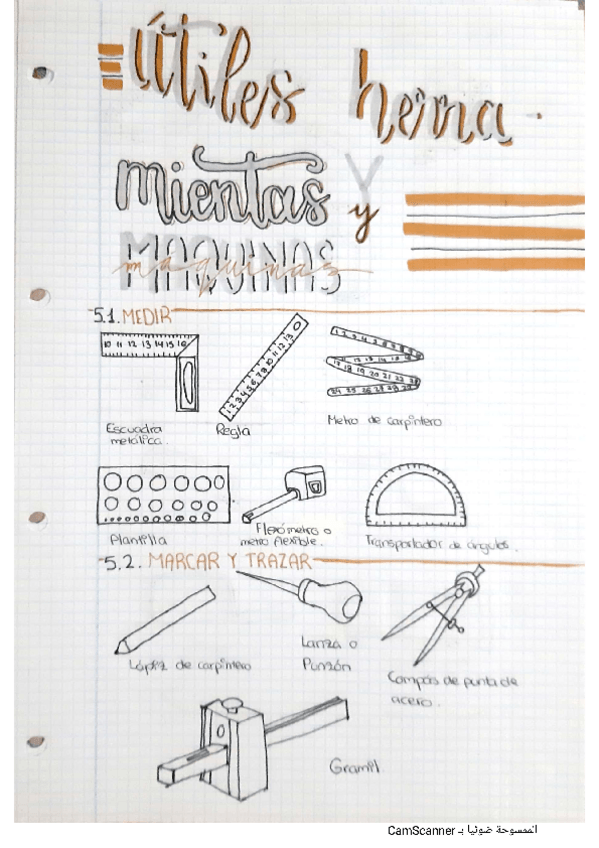 útiles herra-
mientas y
y
MAQUINAS
máquinas
5.1. MEDIR
10 11 12 13 14 15 16
1 2 3 4 5 6 7 8 9 10 11 12 13
Escuadra
metálica.
Regla
Metro de carpintero
Plantilla
Flexómetro o
metro flexible.
Transportador de ángulos.
5.2. MARCAR Y TRAZAR
Lápiz de carpintero
Lanza o
Punzón
Compás de punta de
acero.
Gramil
الممسوحة ضوئيا بـ CamScanner